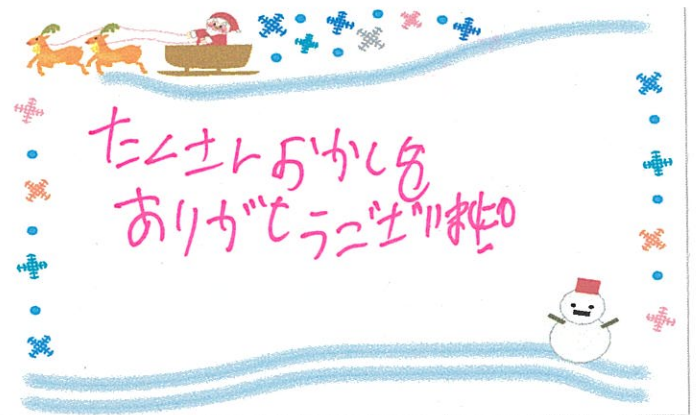 たくさんおかしを
ありがとうございました。